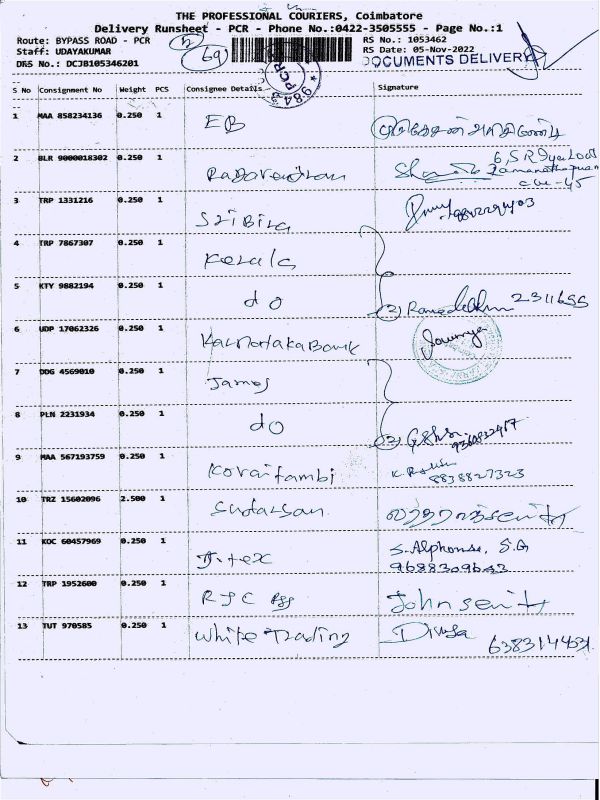 THE PROFESSIONAL COURIERS, Coimbatore
Delivery Runsheet - PCR - Phone No.:0422-3505555 - Page No.:1
Route: BYPASS ROAD - PCR RS No.: 1053462
Staff: UDAYAKUMAR 69 RS Date: 05-Nov-2022
DRS No.: DCJB105346201 DOCUMENTS DELIVERY
S No Consignment No Weight PCS Consignee Details Signature
1 MAA 858234136 0.250 1 EB
2 BLR 9000018302 0.250 1 Ragavendran
3 TRP 1331216 0.250 1 Sri Bira
4 TRP 7867307 0.250 1 Kerala
5 KTY 9882194 0.250 1 do (2) 2311655
6 UDP 17062326 0.250 1 Karnataka Bank Sowmya
7 DDG 4569010 0.250 1 James
8 PLN 2231934 0.250 1 do (2)
9 MAA 567193759 0.250 1 Kovai tambi 8838827323
10 TRZ 15602096 2.500 1 Sudarsan
11 KOC 60457969 0.250 1 S. Alphonse, S.G
12 TRP 1952600 0.250 1 RJC John
13 TUT 970585 0.250 1 White Trading